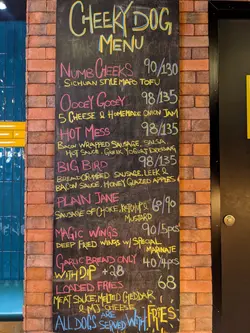 CHEEKY DOG
MENU
NUMB CHEEKS 90/130
SICHUAN STYLE MAPO TOFU
OOOEY GOOEY 98/135
5 CHEESE & HOMEMADE ONION JAM
HOT MESS 98/135
BACON WRAPPED SAUSAGE, SALSA,
HOT SAUCE, GREEK YOGURT DRESSING
BIG BIRD 98/135
BREADCRUMBED SAUSAGE, LEEK &
BACON SAUCE, HONEY GRAZED APPLES
PLAIN JANE 68/90
SAUSAGE OF CHOICE, KETCHUP &
MUSTARD
MAGIC WINGS 90/5pcs
DEEP FRIED WINGS W/ SPECIAL
MARINATE
GARLIC BREAD ONLY 40/4pcs
WITH DIP +28
LOADED FRIES 68
MEAT SAUCE, MELTED CHEDDAR
& CHEESE
ALL DOGS ARE SERVED WITH FRIES